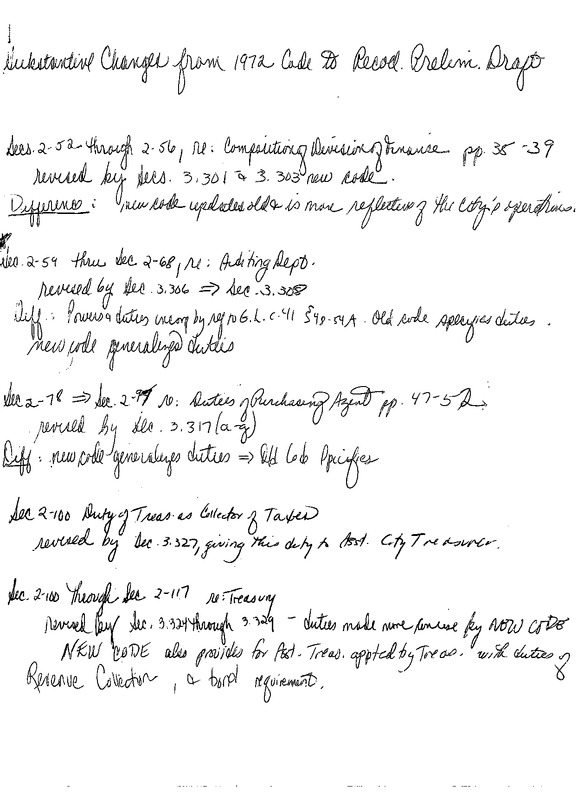 Substantive Changes from 1972 Code to Recod. Prelim. Draft
Secs. 2-52 through 2-56, re: Composition of Division of Finance pp. 35-39
revised by Secs. 3.301 & 3.303 new code.
Difference: new code updates old & is more reflective of the City's operations.
Sec. 2-59 thru Sec. 2-68, re: Auditing Dept.
revised by Sec. 3.306 ⇒ Sec. 3.308
Diff.: Powers & duties incorp by ref to G.L. c. 41 § 48-54A. Old code specifies duties.
new code generalized duties
Sec 2-78 ⇒ Sec. 2-99 re: Duties of Purchasing Agent pp. 47-52
revised by Sec. 3.317(a-g)
Diff: new code generalizes duties ⇒ Old Code specifies
Sec 2-100 Duty of Treas. as Collector of Taxes
revised by Sec. 3.327, giving this duty to Asst. City Treasurer.
Sec. 2-100 through Sec 2-117 re: Treasury
revised by Sec. 3.324 through 3.329 - duties made more concise by NEW CODE
NEW CODE also provides for Ast. Treas. appted by Treas. with duties of
Revenue Collection, & bond requirement.